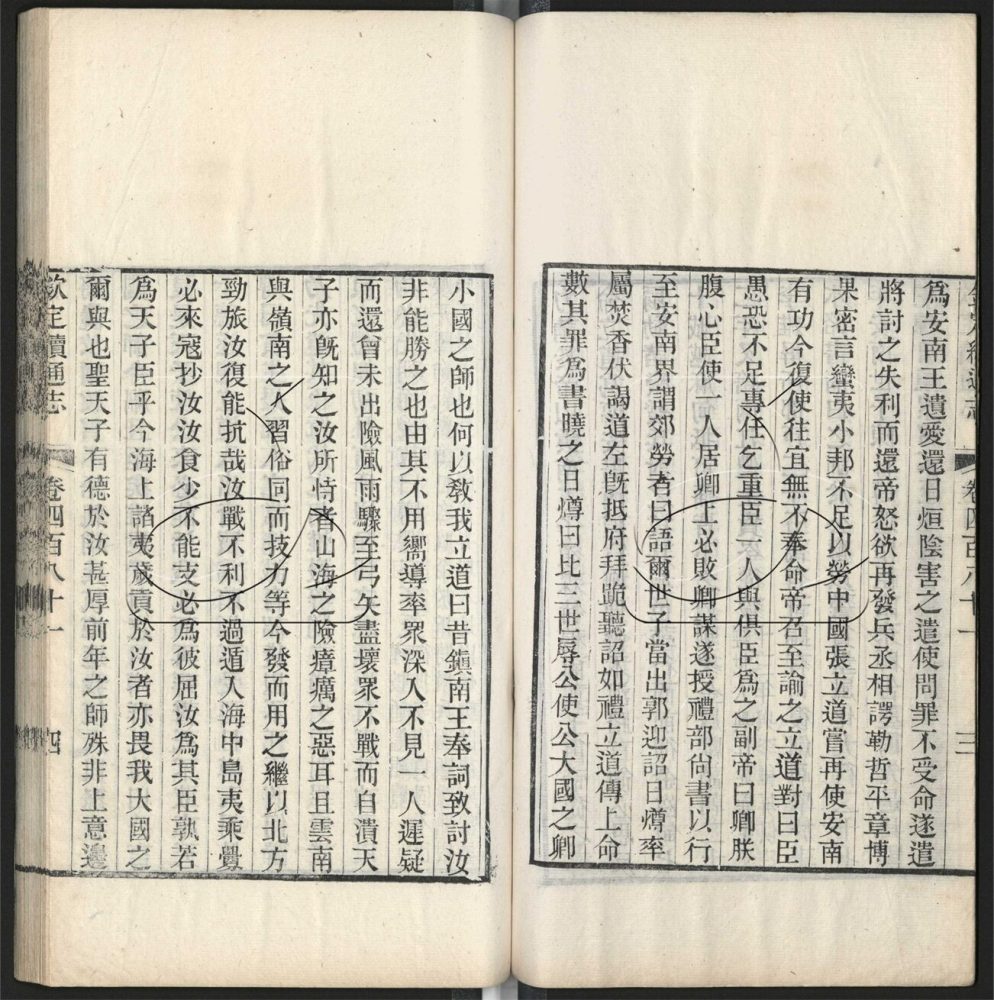 爲安南王遺愛還日烜陰害之遣使問罪不受命遂遣
將討之失利而還帝怒欲再發兵丞相諤勒哲平章博
果密言蠻夷小邦不足以勞中國張立道嘗再使安南
有功今復使往宜無不奉命帝召至諭之立道對曰臣
愚恐不足專任乞重臣一人與俱臣爲之副帝曰卿朕
腹心臣使一人居卿上必敗卿謀遂授禮部尙書以行
至安南界謂郊勞者曰語爾世子當出郭迎詔日燇率
屬焚香伏謁道左旣抵府拜跪聽詔如禮立道傳上命
數其罪爲書曉之日燇曰比三世辱公使公大國之卿
卷四百八十一
三
小國之師也何以敎我立道曰昔鎭南王奉詞致討汝
非能勝之也由其不用嚮導率眾深入不見一人遲疑
而還曾未出險風雨驟至弓矢盡壞眾不戰而自潰天
子亦旣知之汝所恃者山海之險瘴癘之惡耳且雲南
與嶺南之人習俗同而技力等今發而用之繼以北方
勁旅汝復能抗哉汝戰不利不過遁入海中島夷乘釁
必來寇抄汝汝食少不能支必爲彼屈汝爲其臣孰若
爲天子臣乎今海上諸夷歲貢於汝者亦畏我大國之
爾與也聖天子有德於汝甚厚前年之師殊非上意邊
欽定續通志
卷四百八十一
四